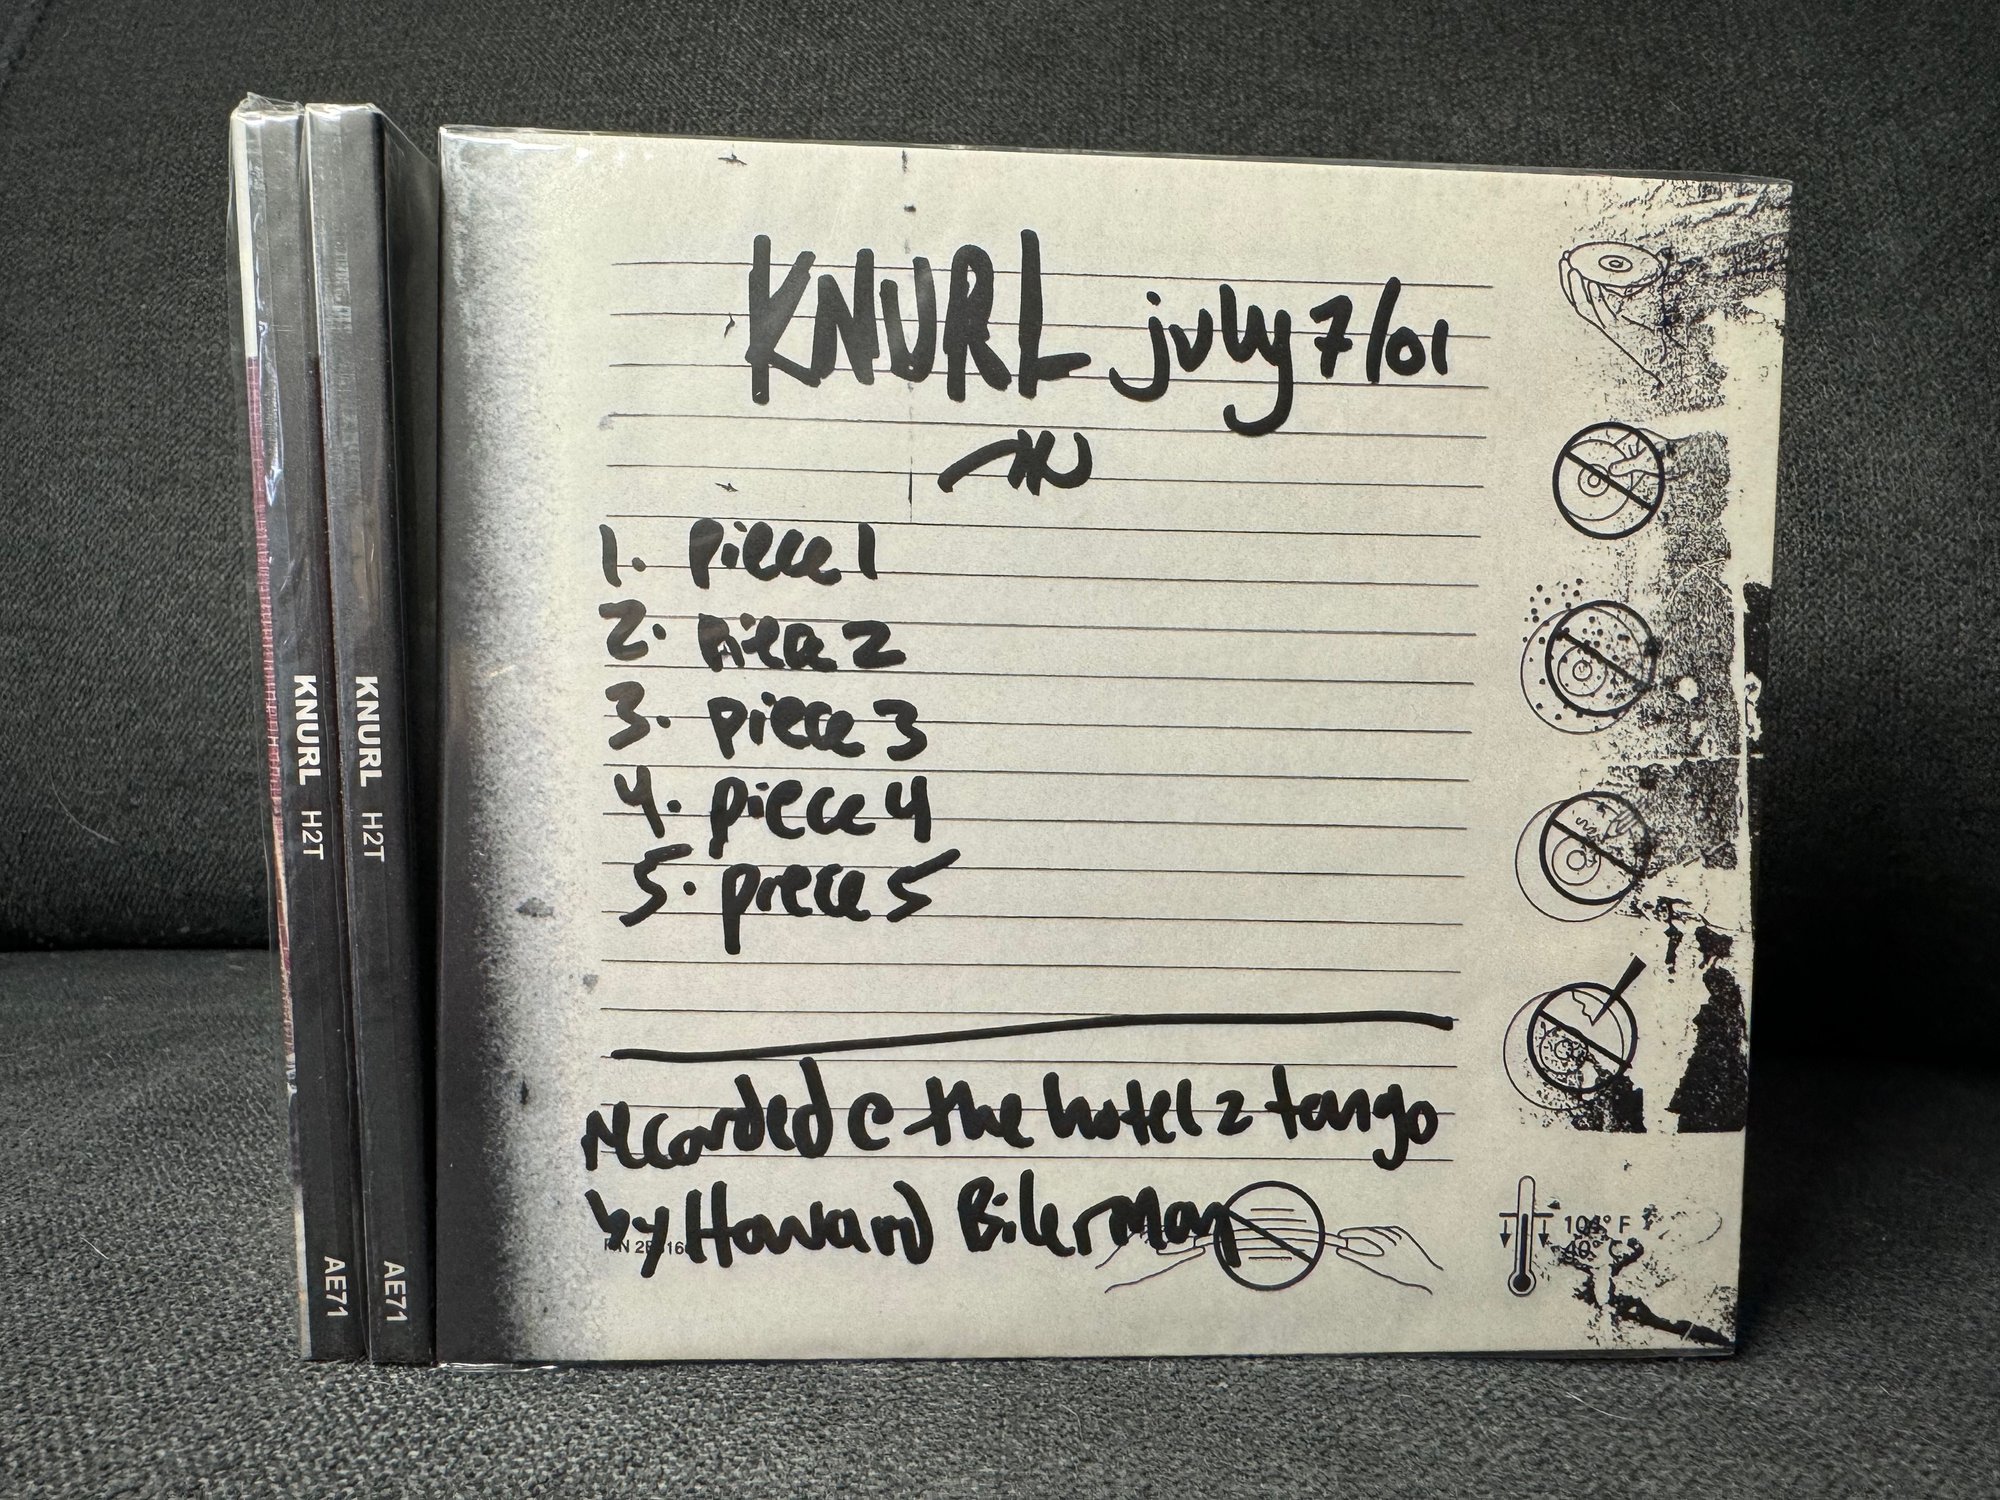 KNURL H2T AE71
KNURL H2T AE71
KNURL july 7/01
1. piece 1
2. piece 2
3. piece 3
4. piece 4
5. piece 5
recorded @ the hotel 2 tango
by Howard Bilerman
104° F
40° C